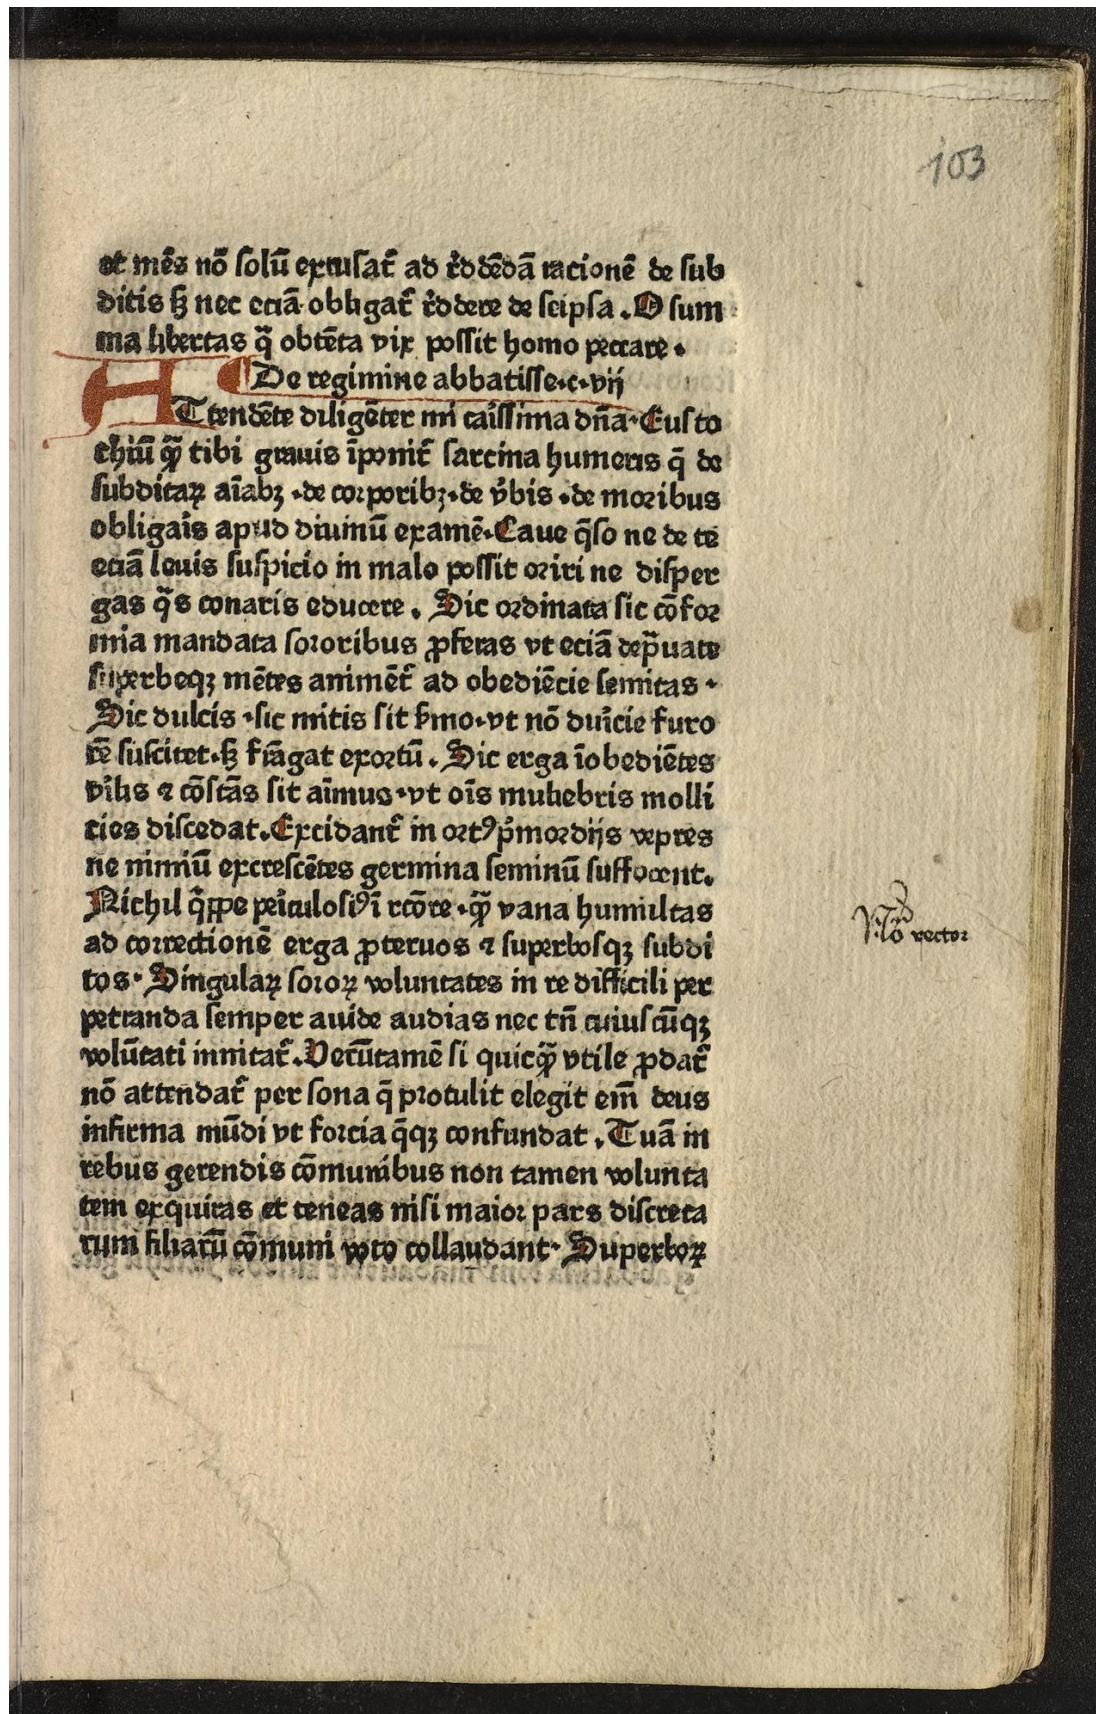 103
et mẽs nõ solũ excusat᷑ ad r̃ddẽdã racionẽ de sub
ditis sꝫ nec eciã obligat᷑ r̃ddere de seipsa . O sum
ma libertas q̃ obtẽta vix possit homo peccare .
¶ De regimine abbatisse . c . vij
ATtendẽte diligẽter mi caĩssima dña . Eusto
chiũ qꝫ̃ tibi grauis ĩponit᷑ sarcina humeris q̃ de
subditaꝝ aĩabꝫ . de corporibꝫ . de v̾bis . de moribus
obligaĩs apud diuinũ examẽ . Caue q̃so ne de te
eciã leuis suspicio in malo possit oriri ne disper
gas q̃s conaris educere . Sic ordinata sic cõfor
mia mandata sororibus ꝓferas vt eciã dep̃uate
superbeqꝫ mẽtes animẽt᷑ ad obediẽcie semitas .
Sic dulcis . sic mitis sit s̾mo . vt nõ duĩcie furo
rẽ suscitet . sꝫ frãgat exortũ . Sic erga ĩobediẽtes
viĩlis ⁊ cõstãs sit aĩmus . vt oĩs muliebris molli
cies discedat . Excidant᷑ in ortꝰ p̃mordijs vepres
ne nimiũ excrescẽtes germina seminũ suffocent .
Nichil q̃ppe peĩculosiꝰ ĩ rcõre . qꝫ̃ vana humilitas
ad correctionẽ erga ꝓteruos ⁊ superbosqꝫ subdi
tos . Singulaꝝ soroꝝ voluntates in re difficili per
petranda semper auide audias nec tñ cuiuscũqꝫ
volũtati innitat᷑ . Verũtamẽ si quicqꝫ̃ vtile ꝓdat᷑
nõ attendat᷑ persona q̃ protulit elegit em̃ deus
infirma mũdi vt forcia q̃qꝫ confundat . Tuã in
rebus gerendis cõmunibus non tamen volunta
tem exquiras et teneas nisi maior pars discreta
rum filiarũ cõmuni voto collaudant . Superboꝝ
rector